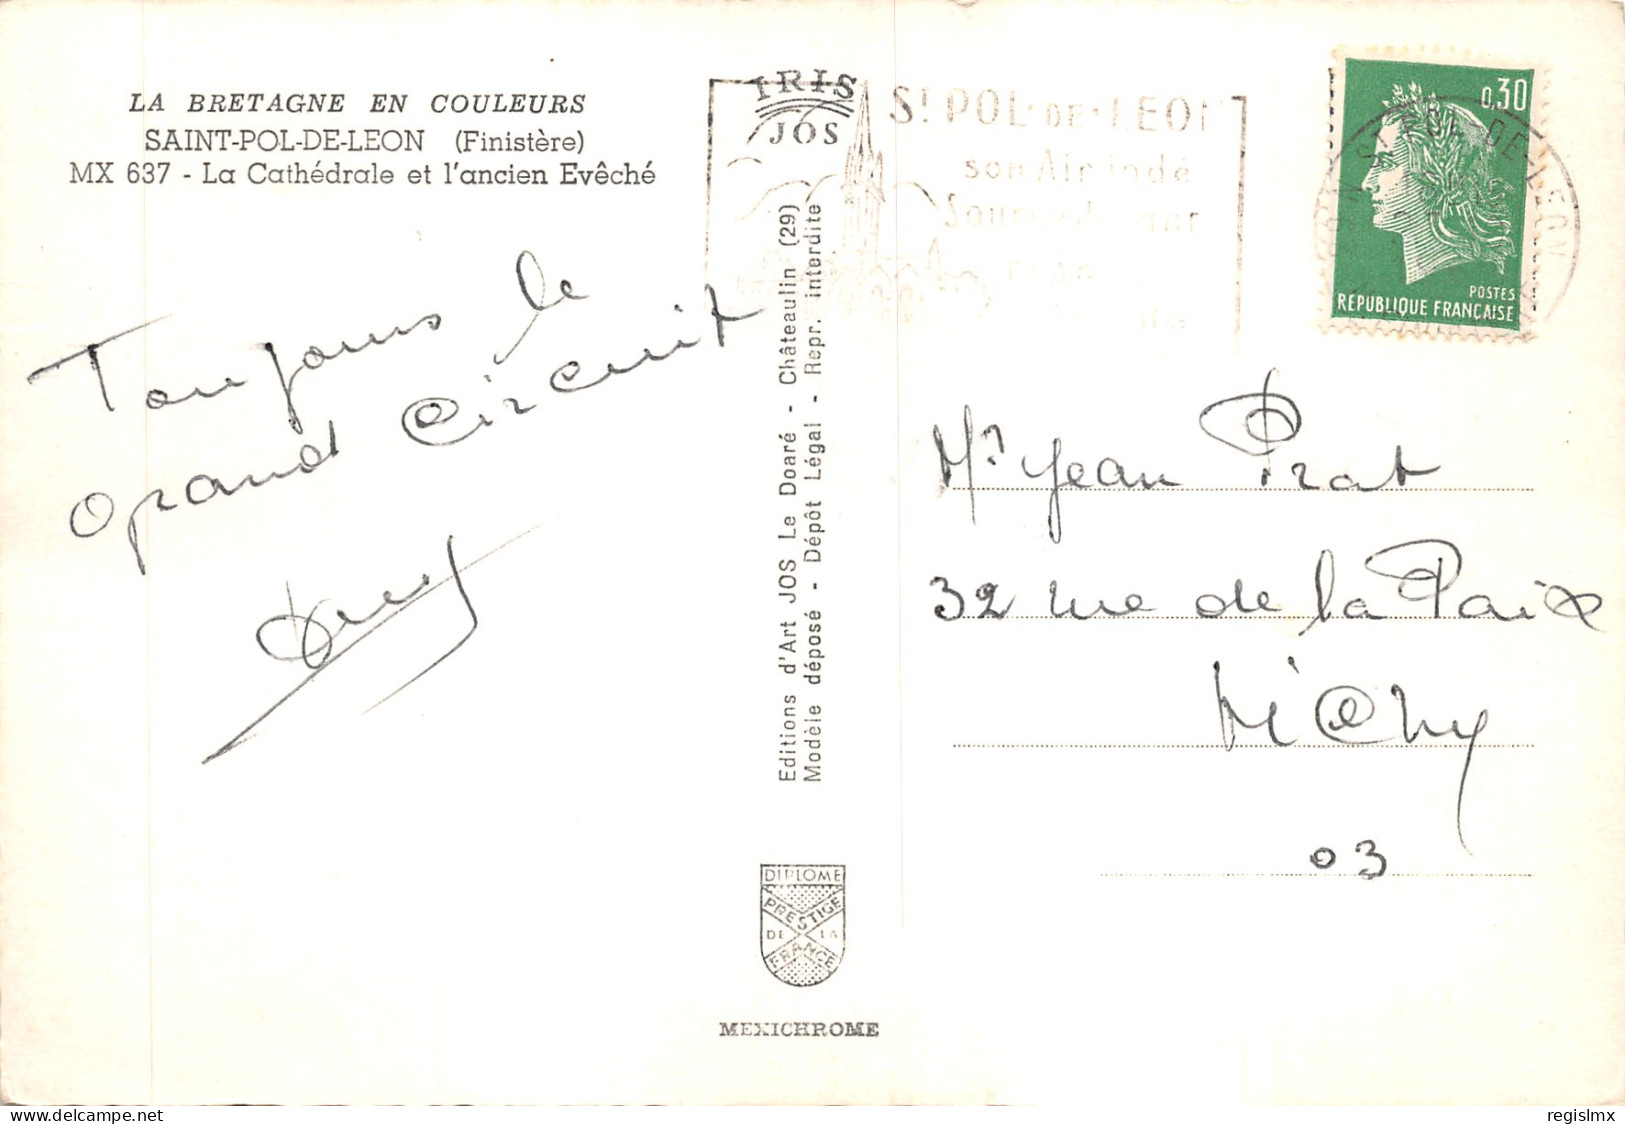 LA BRETAGNE EN COULEURS
SAINT-POL-DE-LEON (Finistère)
MX 637 - La Cathédrale et l'ancien Evêché
IRIS
JOS
ST POL-DE-LEON
son Air iodé
0,30
POSTES
REPUBLIQUE FRANÇAISE
ST POL-DE-LEON
Toujours le
grand Circuit
Editions d'Art JOS Le Doaré - Châteaulin (29)
Modèle déposé - Dépôt Légal - Repr. interdite
Mr Jean Prat
32 rue de la Paix
Vichy
03
DIPLOME
PRESTIGE
DE LA
FRANCE
MEXICHROME
regislmx